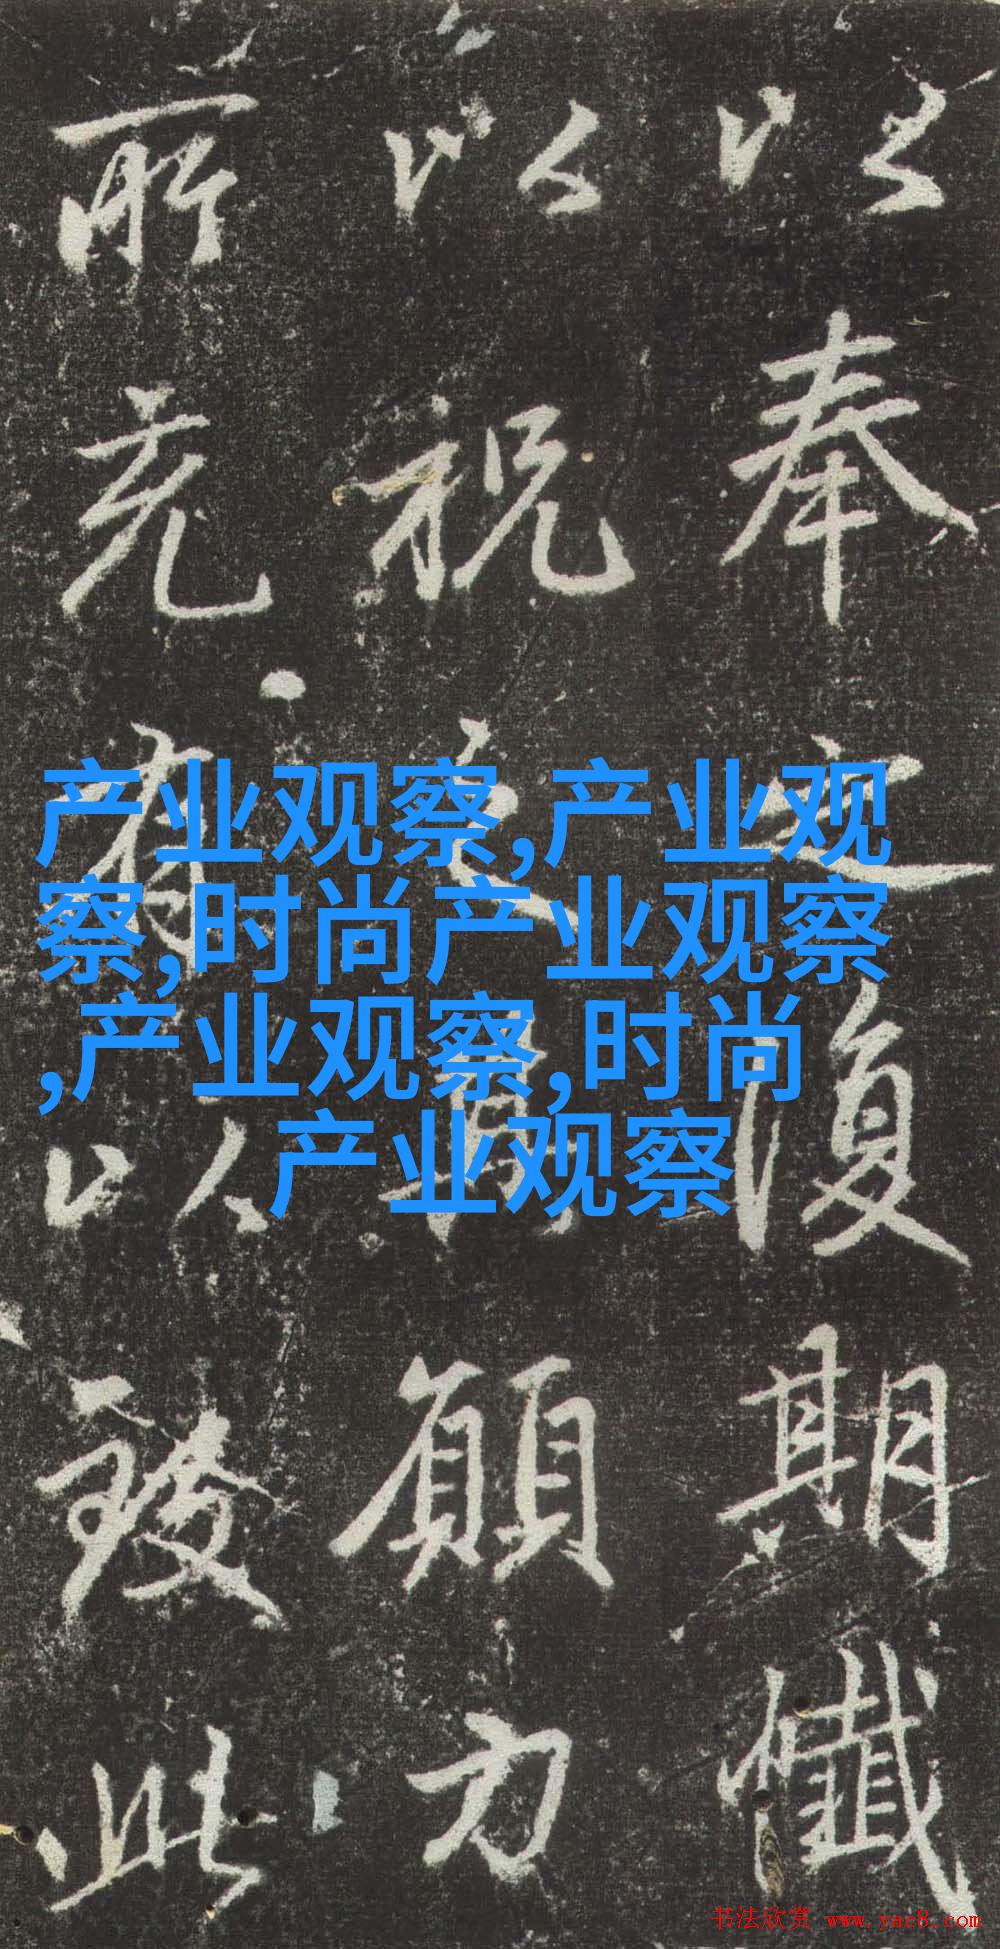 以奉之復期懺
以祝之願力
所以致此
产业观察,产业观
察,时尚产业观察
,产业观察,时尚
产业观察
书法欣赏 www.yac8.com